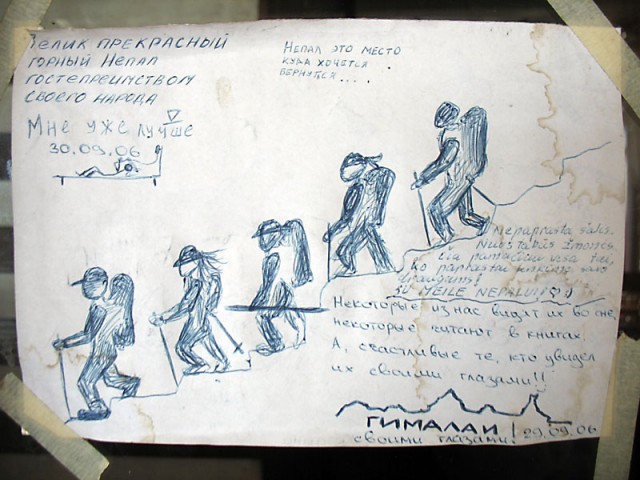 Велик прекрасный
горный Непал
гостеприимством
своего народа
Мне уже лучше
30.09.06
Непал это место
куда хочется
вернутся....
Nepaprasta šalis.
Nuostabūs žmonės.
Čia pamačiau visa tai,
ko paprastai
draugams!
Su meile Nepalui
Некоторые из нас видят их во сне,
некоторые читают в книгах.
А, счастливые те, кто увидел
их своими глазами!!
ГИМАЛАИ
своими глазами! 29.09.06